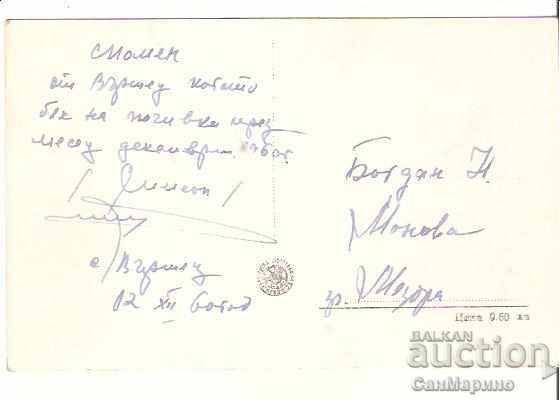 спомен
от Вършец когато
бях на почивка през
месец декември 1960г.
/ Симеон /
с. Вършец
12 XII 60 год
Богдан Н.
Монова
гр. Мездра
Цена 0.60 лв
BALKAN
auction
СанМарино